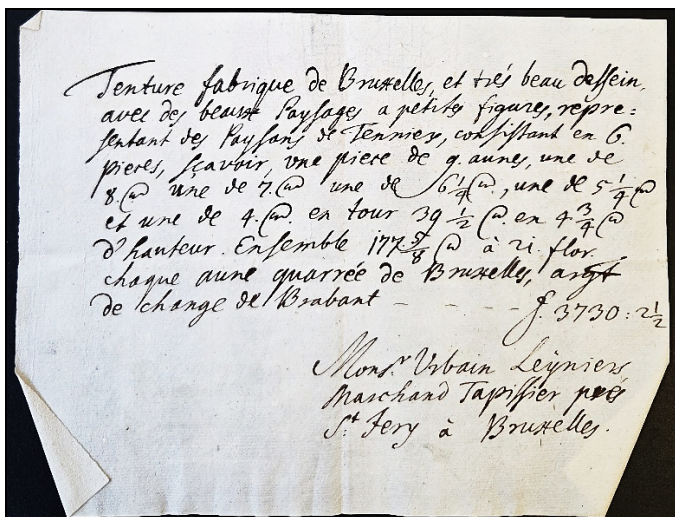 Tenture fabrique de Bruxelles, et trés beau dessein,
avec des beaux Paysages a petites figures, repre=
sentant des Paysans de Tenniers, consistant en 6.
pieces, sçavoir, une piece de 9. aunes, une de
8. une de 7. une de 6 1/4, une de 5 1/4
et une de 4. en tour 39 1/2 en 4 3/4
d'hauteur. Ensemble 177 5/8 à 21. flor.
chaque aune quarrée de Bruxelles, argt
de change de Brabant - - - - f. 3730 : 2 1/2
Monsr. Urbain Leÿniers
Marchand Tapissier prés
St. Jery à Bruxelles.